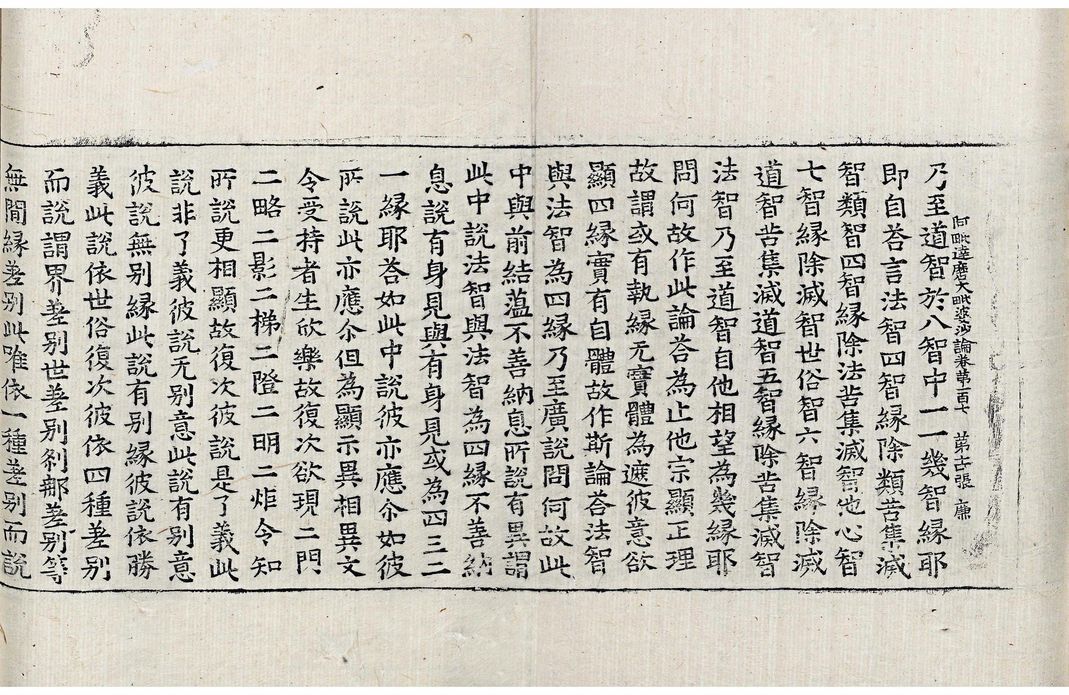 阿毗達磨大毗婆沙論卷第一百七 第十七張 廉
乃至道智於八智中一一幾智緣耶
即自荅言法智四智緣除類苦集滅
智類智四智緣除法苦集滅智他心智
七智緣除滅智世俗智六智緣除滅
道智苦集滅道智五智緣除苦集滅智
法智乃至道智自他相望為幾緣耶
問何故作此論荅為止他宗顯正理
故謂或有執緣无實體為遮彼意欲
顯四緣實有自體故作斯論荅法智
與法智為四緣乃至廣說問何故此
中與前結蕰不善納息所說有異謂
此中說法智與法智為四緣不善納
息說有身見與有身見或為四三二
一緣耶荅如此中說彼亦應尒如彼
所說此亦應尒但為顯示異相異文
令受持者生欣樂故復次欲現二門
二略二影二梯二隥二明二炬令知
所說更相顯故復次彼說是了義此
說非了義彼說无別意此說有別意
彼說無別緣此說有別緣彼說依勝
義此說依世俗復次彼依四種差別
而說謂界差別世差別刹那差別等
無間緣差別此唯依一種差別而說